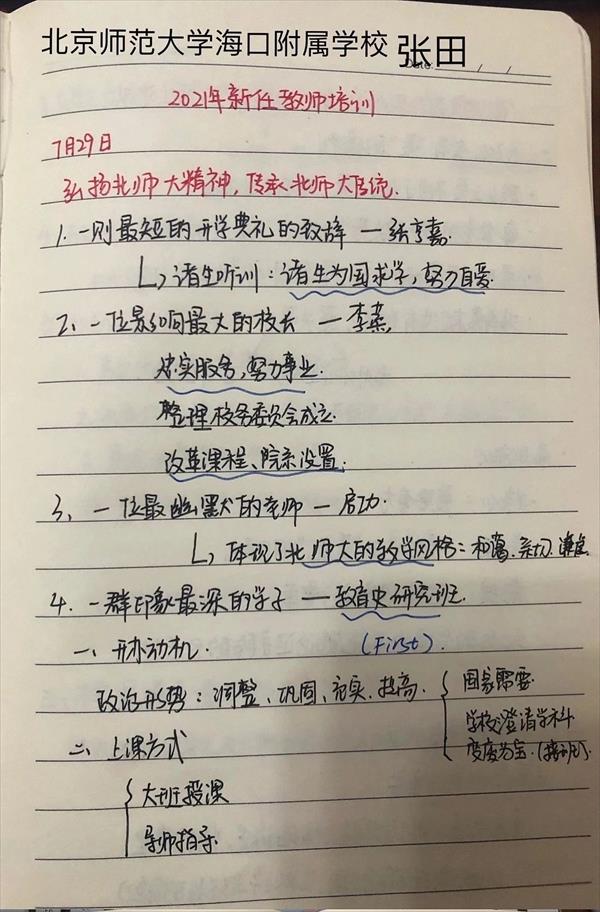 北京师范大学海口附属学校 张田
Date: / /
2021年新任教师培训
7月29日
弘扬北师大精神,传承北师大传统.
1.一则最短的开学典礼的致辞 — 张亨嘉.
诸生听训:诸生为国求学,努力自爱
2、一位影响最大的校长 — 李蒸,
忠实服务,努力事业.
整理校务委员会成立.
改革课程、院系设置.
3、一位最幽默的老师 — 启功.
体现了北师大的教学风格:和蔼.亲切.谦虚
4.一群印象最深的学子 — 教育史研究班.
一、开办动机. (First).
政治形势:调整、巩固、充实、提高. 国家需要
学校澄清学科
变废为宝.
二、上课方式
大班授课
导师指导.